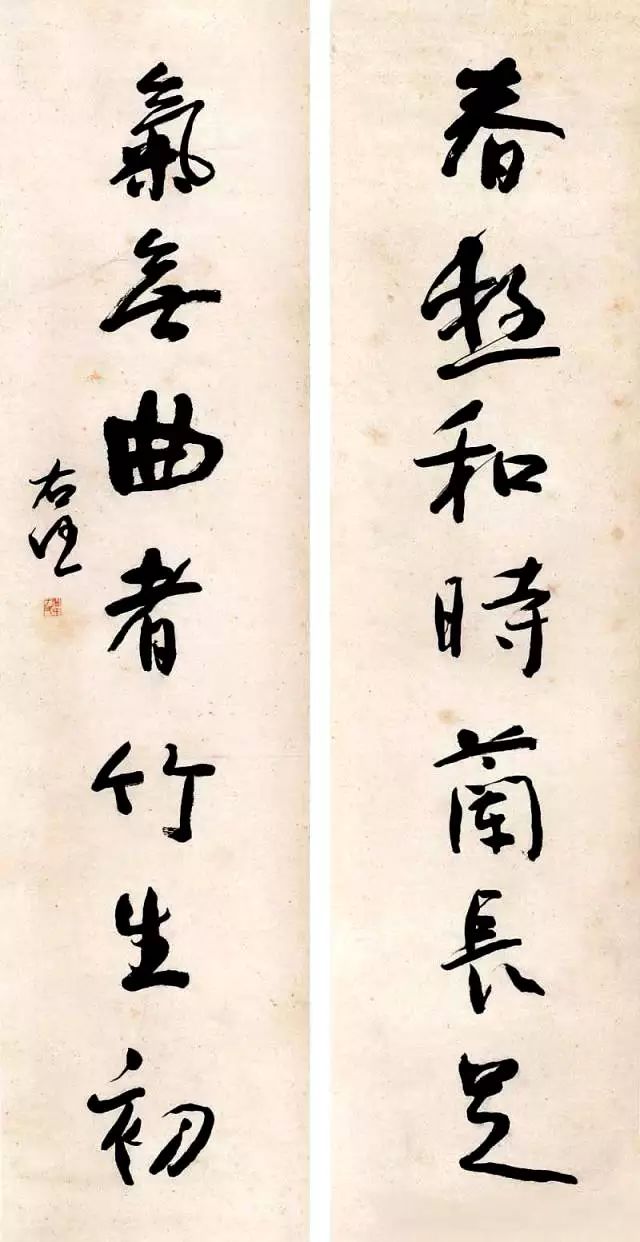 春極和時蘭長足
氣無曲者竹生初
右任